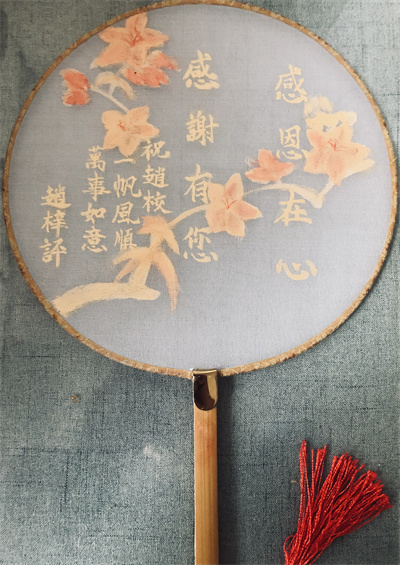 感恩在心
感謝有您
祝趙校
一帆風順
萬事如意
趙梓評